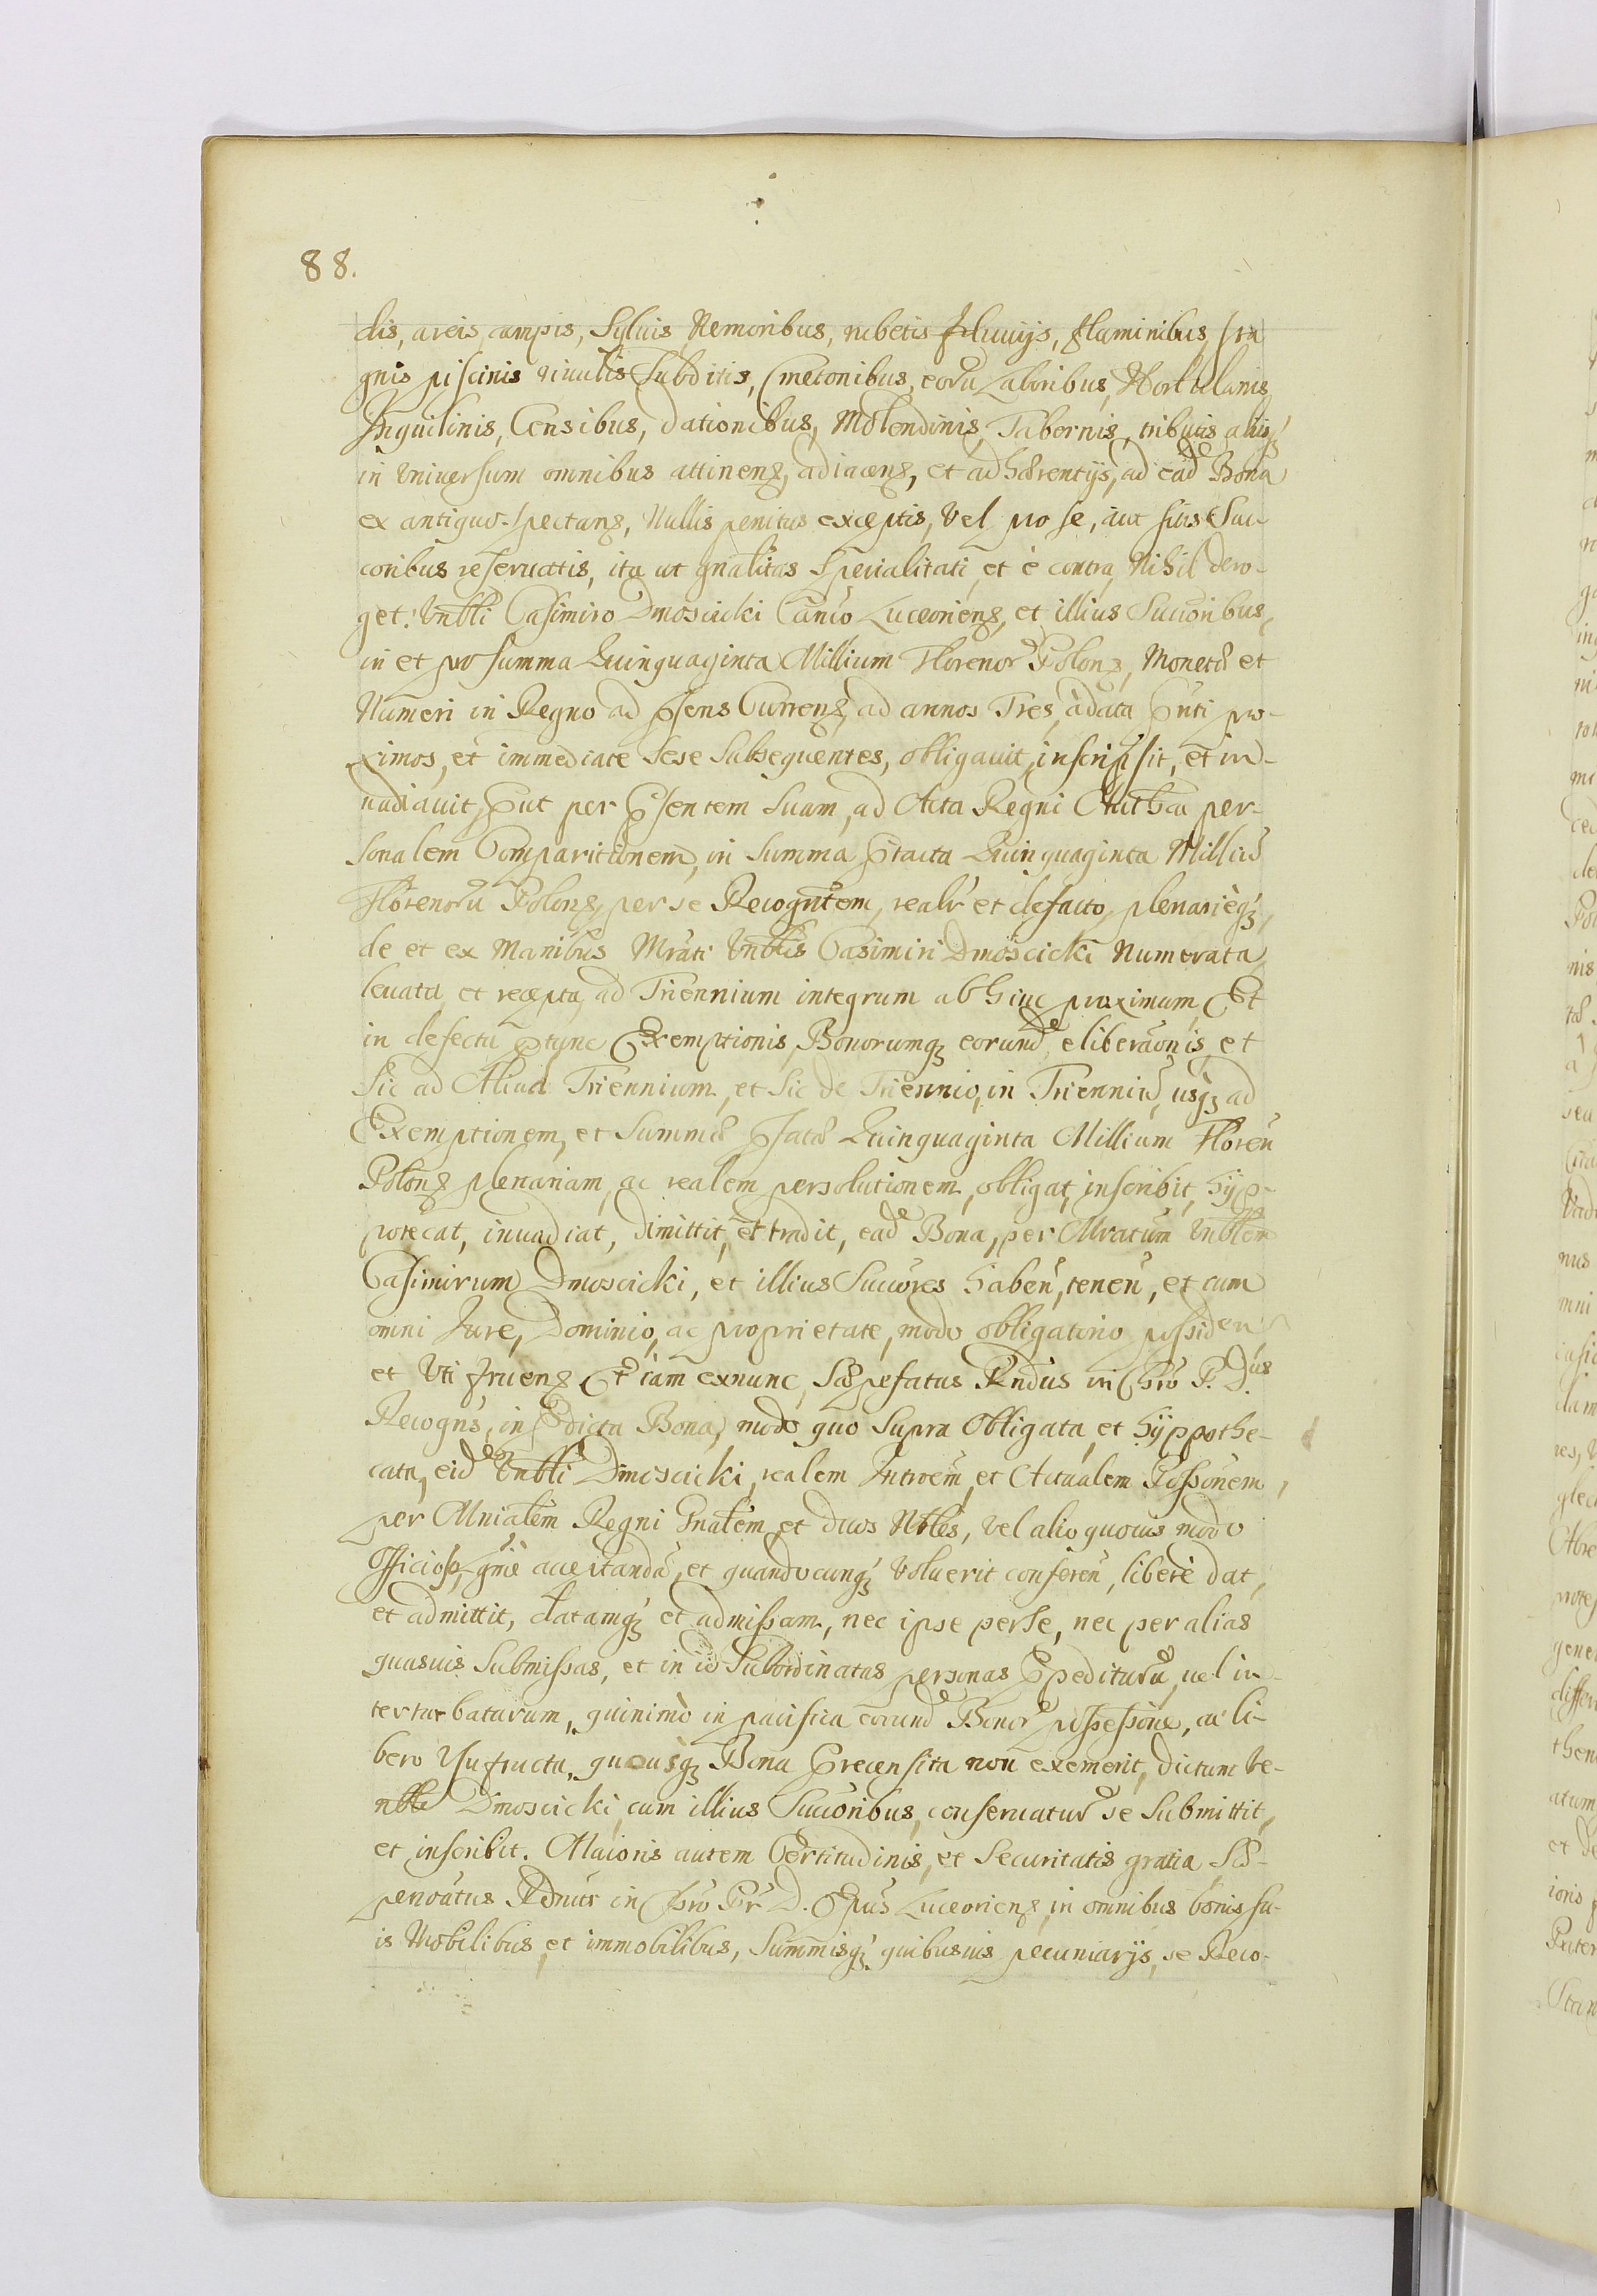 88.
dis, areis campis, Sylvis Nemoribus, rubetis fluuijs, fluminibus, sta
gnis piscinis riuulis Subditis, Cmetonibus, eorũ Laboribus, Hortulanis,
Inquilinis, Censibus, dationibus, Molendinis, Tabernis, tributis alijsq́
in Vniuersum omnibus attinenꝫ, adiacenꝫ, et adhærentijs, ad eadᵈᵉ Bona
ex antiquo spectanꝫ, Nullis penitus exceptis, Vel pro se, aut suis Suc
coribus reseruatis, ita ut gnalitas Specialitati, et è contra Nihil dero-
get. Vnbli Casimiro Dmoscicki Canco Luceorienꝫ, et illius Succoribus,
in et pro summa Quinquaginta Millium Florenorᵉ Polonꝫ, Monetæ et
Numeri in Regno ad Pñsens Currenꝫ, ad annos Tres, à data Pñti pro-
ximos, et immediate Sese Subsequentes, obligauit, inscripsit, et in-
uadiauit, Put per Pñsentem Suam, ad Acta Regni Authca per-
sonalem Comparitionem, in Summa Ptacta Quinquaginta Milliũ
Florenorũ Polonꝫ, per se Recogntem, realr et defacto, plenarièqꝫ,
de et ex Manibus Mrati Vnblis Casimiri Dmoscicki Numerata
leuata et recepta, ad Triennium integrum abhinc proximum Et
in defectu Ptunc Exemptionis, Bonorumqꝫ eorundᵉ eliberaonis, et
Sic ad Aliud Triennium, et Sic de Triennio, in Trienniũ, usqꝫ ad
Exemptionem, et Summæ Pfatæ Quinquaginta Millium Floreñ
Polonꝫ plenariam, ac realem persolutionem, obligat, inscribit, hyp-
potecat, inuadiat, dimittit, et tradit, eadᵉ Bona, per Mratum Vnblem
Casimirum Dmoscicki, et illius Succores habeñ, teneñ, et cum
omni Jure, Dominio, ac proprietate, modo obligatorio possideñ
et Vti fruenꝫ Et iam exnunc, Sæpefatus Rndus in Chro P. D.us
Recogns, in Pdicta Bona, modo quo Supra Obligata, et hyppothe-
cata, eidᵈᵉ Vnbli Dmoscicki, realem Introem, et Actualem Possonem,
per Mnialem Regni Gnalem, et duos Nbles, Vel alio quouis modo
Officiose, gnie acceptandã, et quandocunqꝫ Voluerit confereñ, liberè dat,
et admittit, datamqꝫ et admissam, nec ipse per se, nec per alias
quasuis Submissas, et in id Subordinatas personas Ppediturũ, uel in-
terturbaturum, quinimò in pacifica eorundᵉ Bonorᵉ possessione, ac li-
bero Vsufructu, quousqꝫ Bona Precensita non exemerit, dictum Ve-
nble Dmoscicki, cum illius Succoribus, conseruaturᵉ se Submittit,
et inscribit. Maioris autem Certitudinis, et Securitatis gratia Sæ-
penoatus Rdnus in Chro Pr D. Eppus Luceorienꝫ, in omnibus bonis su-
is Mobilibus, et immobilibus, Summisqꝫ quibusuis pecuniarijs, se Reco-